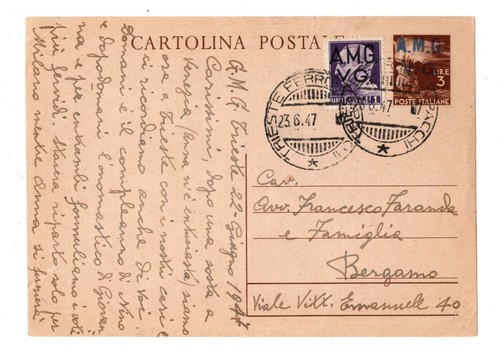 CARTOLINA POSTALE
A.M.G.
V.G.
A.M.G.
LIRE
3
POSTE ITALIANE
TRIESTE FERROVIA
23.6.47
PACCHI
G.M.G. Trieste 22-Giugno 1947
Carissimi, dopo una sosta a
Venezia (Anna n'è entusiasta) siamo
ora a Trieste con i nostri cari e
ci ricordiamo anche di Voi.
Domani è il compleanno di Nino
e dopodomani l'onomastico di Giovan
na e per entrambi formuliamo i voti
più fervidi. Stasera riparto solo per
Milano mentre Anna si fermerà
Cav.
Avv. Francesco Faranda
e Famiglia
Bergamo
Viale Vitt. Emanuele 40